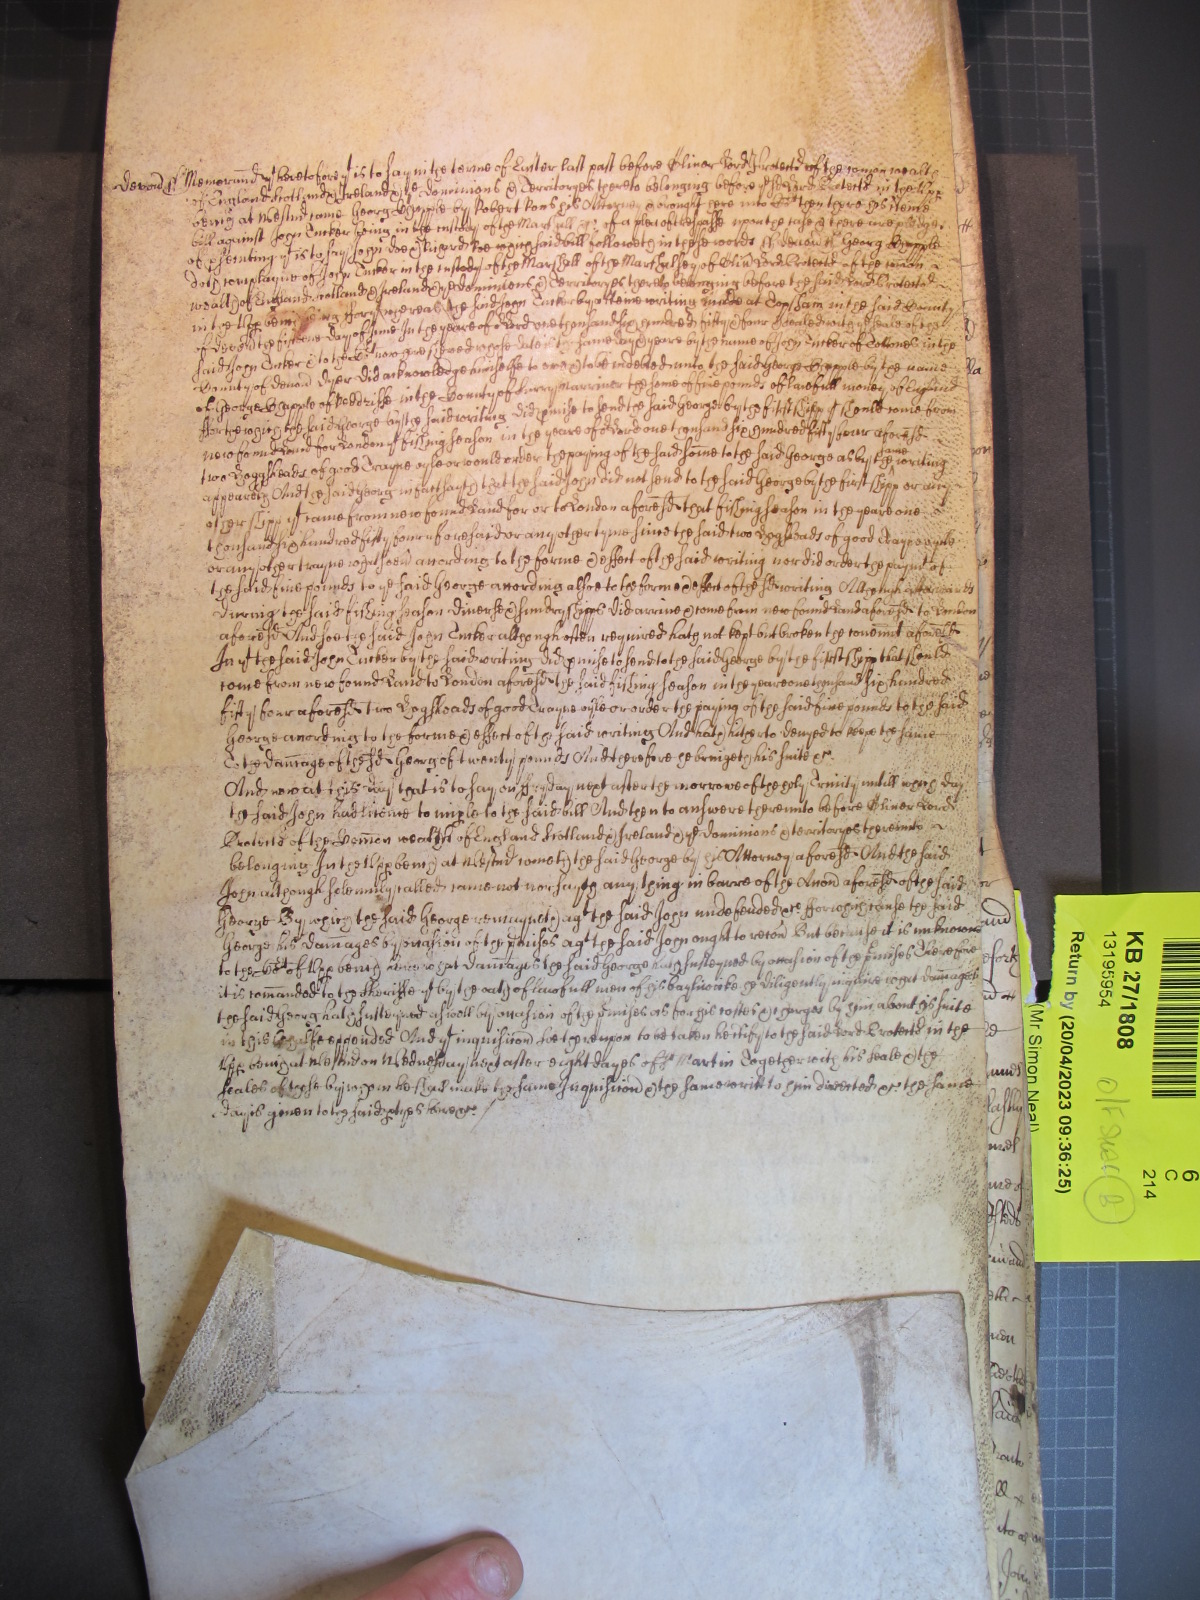 Devon ss Memorand yt heretofore yt is to say in the terme of Easter last past before Oliver Lord Protector of the comon wealth
of England Scotland & Ireland & ye dominions & Territoryes thereto belonging before ye sd Lord Protector in the Upp
bench at Westm came George Whipple by Robert his Attorney & brought here into Court then there his certeine
bill against John Tucker being in the custody of the Marshall &c of a plea of trespasse upon the case & there are pledges
of psecuting yt is to say John Doe & Richard Roe which said bill followeth in these words ss Devon ss George Whipple
doth complayne of John Tucker in the custody of the Marshall of the Marshalsey of Oliver Lord Protector of the comon
wealth of England Scotland & Ireland & ye dominions & Territoryes thereto belonging before the said Lord Protector
in the Upp bench being For that whereas the said John Tucker by a certeine writing made at Topsham in the said County
of Devon the first day of June In the yeare of or Lord one thousand six hundred fifty & four sealed with ye seale of the
said John Tucker & to the Court now here shewed whose date is the same day & yeare by the name of John Tucker of in the
County of Devon Dyer did acknowledge himselfe to owe & to be indebted unto the said George Whipple by the name
of George Whipple of Redriffe in the County of Surry Marriner the some of five pounds of lawfull money of England
ffor the which the said George by the said writing did pmise to send the said George by the first shipp yt should come from
new found land for London yt fishing season in the yeare of or Lord one thousand six hundred fifty four aforesd
two Hoggsheads of good Trayne oyle or would order the paying of the said some to the said George as by the same writing
appeareth And the said George in fact sayth that the said John did not send to the said George by the first shipp or any
other shipp yt came from new found land for or to London aforesd that fishing season in the yeare one
thousand six hundred fifty four aforesaid or any other tyme since the said two Hoggsheads of good Trayne oyle
or any other trayne oyle according to the forme & effect of the said writing nor did order the paymt of
the said five pounds to ye said George according alsoe to the forme & effect of the sd writing Although afterwards
during the said fishing season diverse & sundry shipps did arrive & come from new found land aforesd to London
aforesd And soe the said John Tucker although often required hath not kept but broken the covennt aforesd
In yt the said John Tucker by the said writing did pmise to send to the said George by the first shipp that should
come from new found land to London aforesd the said fishing season in the yeare one thousand six hundred
fifty four aforesd two Hogsheads of good Trayne oyle or order the paying of the said five pounds to the said
George according to the forme & effect of the said writing And hath hitherto denyed to keepe the same
To the damage of the sd George of twenty pounds And therefore he bringeth his suite &c
And now at this day that is to say on ffryday next after the morrowe of the holy Trinity untill which day
the said John had licence to imple to the said bill And then to answere thereunto before Oliver Lord
Protector of the Comon wealth of England Scotland & Ireland & ye dominions & territoryes thereunto
belonging In the Upp bench at Westm cometh the said George by his Attorney aforesd And the said
John although solemnly called came not nor sayth any thing in barre of the Accon aforesd of the said
George By which the said George remayneth agt the said John undefended &c ffor which cause the said
George his damages by occasion of the pmises agt the said John ought to recover But because it is unknowne
to the Court of Upp bench here what damages the said George hath susteyned by occasion of the pmises Therefore
it is comanded to the Sheriffe yt by the oath of lawfull men of his baylywicke he diligently inquire what damages
the said George hath susteyned aswell by occasion of the pmises as for his costes & charges by him about his suite
in this behalfe expended And yt inquisicon soe thereupon to be taken he certify to the said Lord Protector in the
Upp bench at Westm on Wednesday next after eight dayes of St Martin Together with his seale & the
seales of those by whom he shall make the same Inquisicon & the same writt to him directed &c the same
day is given to the said ptyes here &c
KB 27/1808
13195954
Return by (20/04/2023 09:36:25)
6
C
214
(Mr Simon Neal)